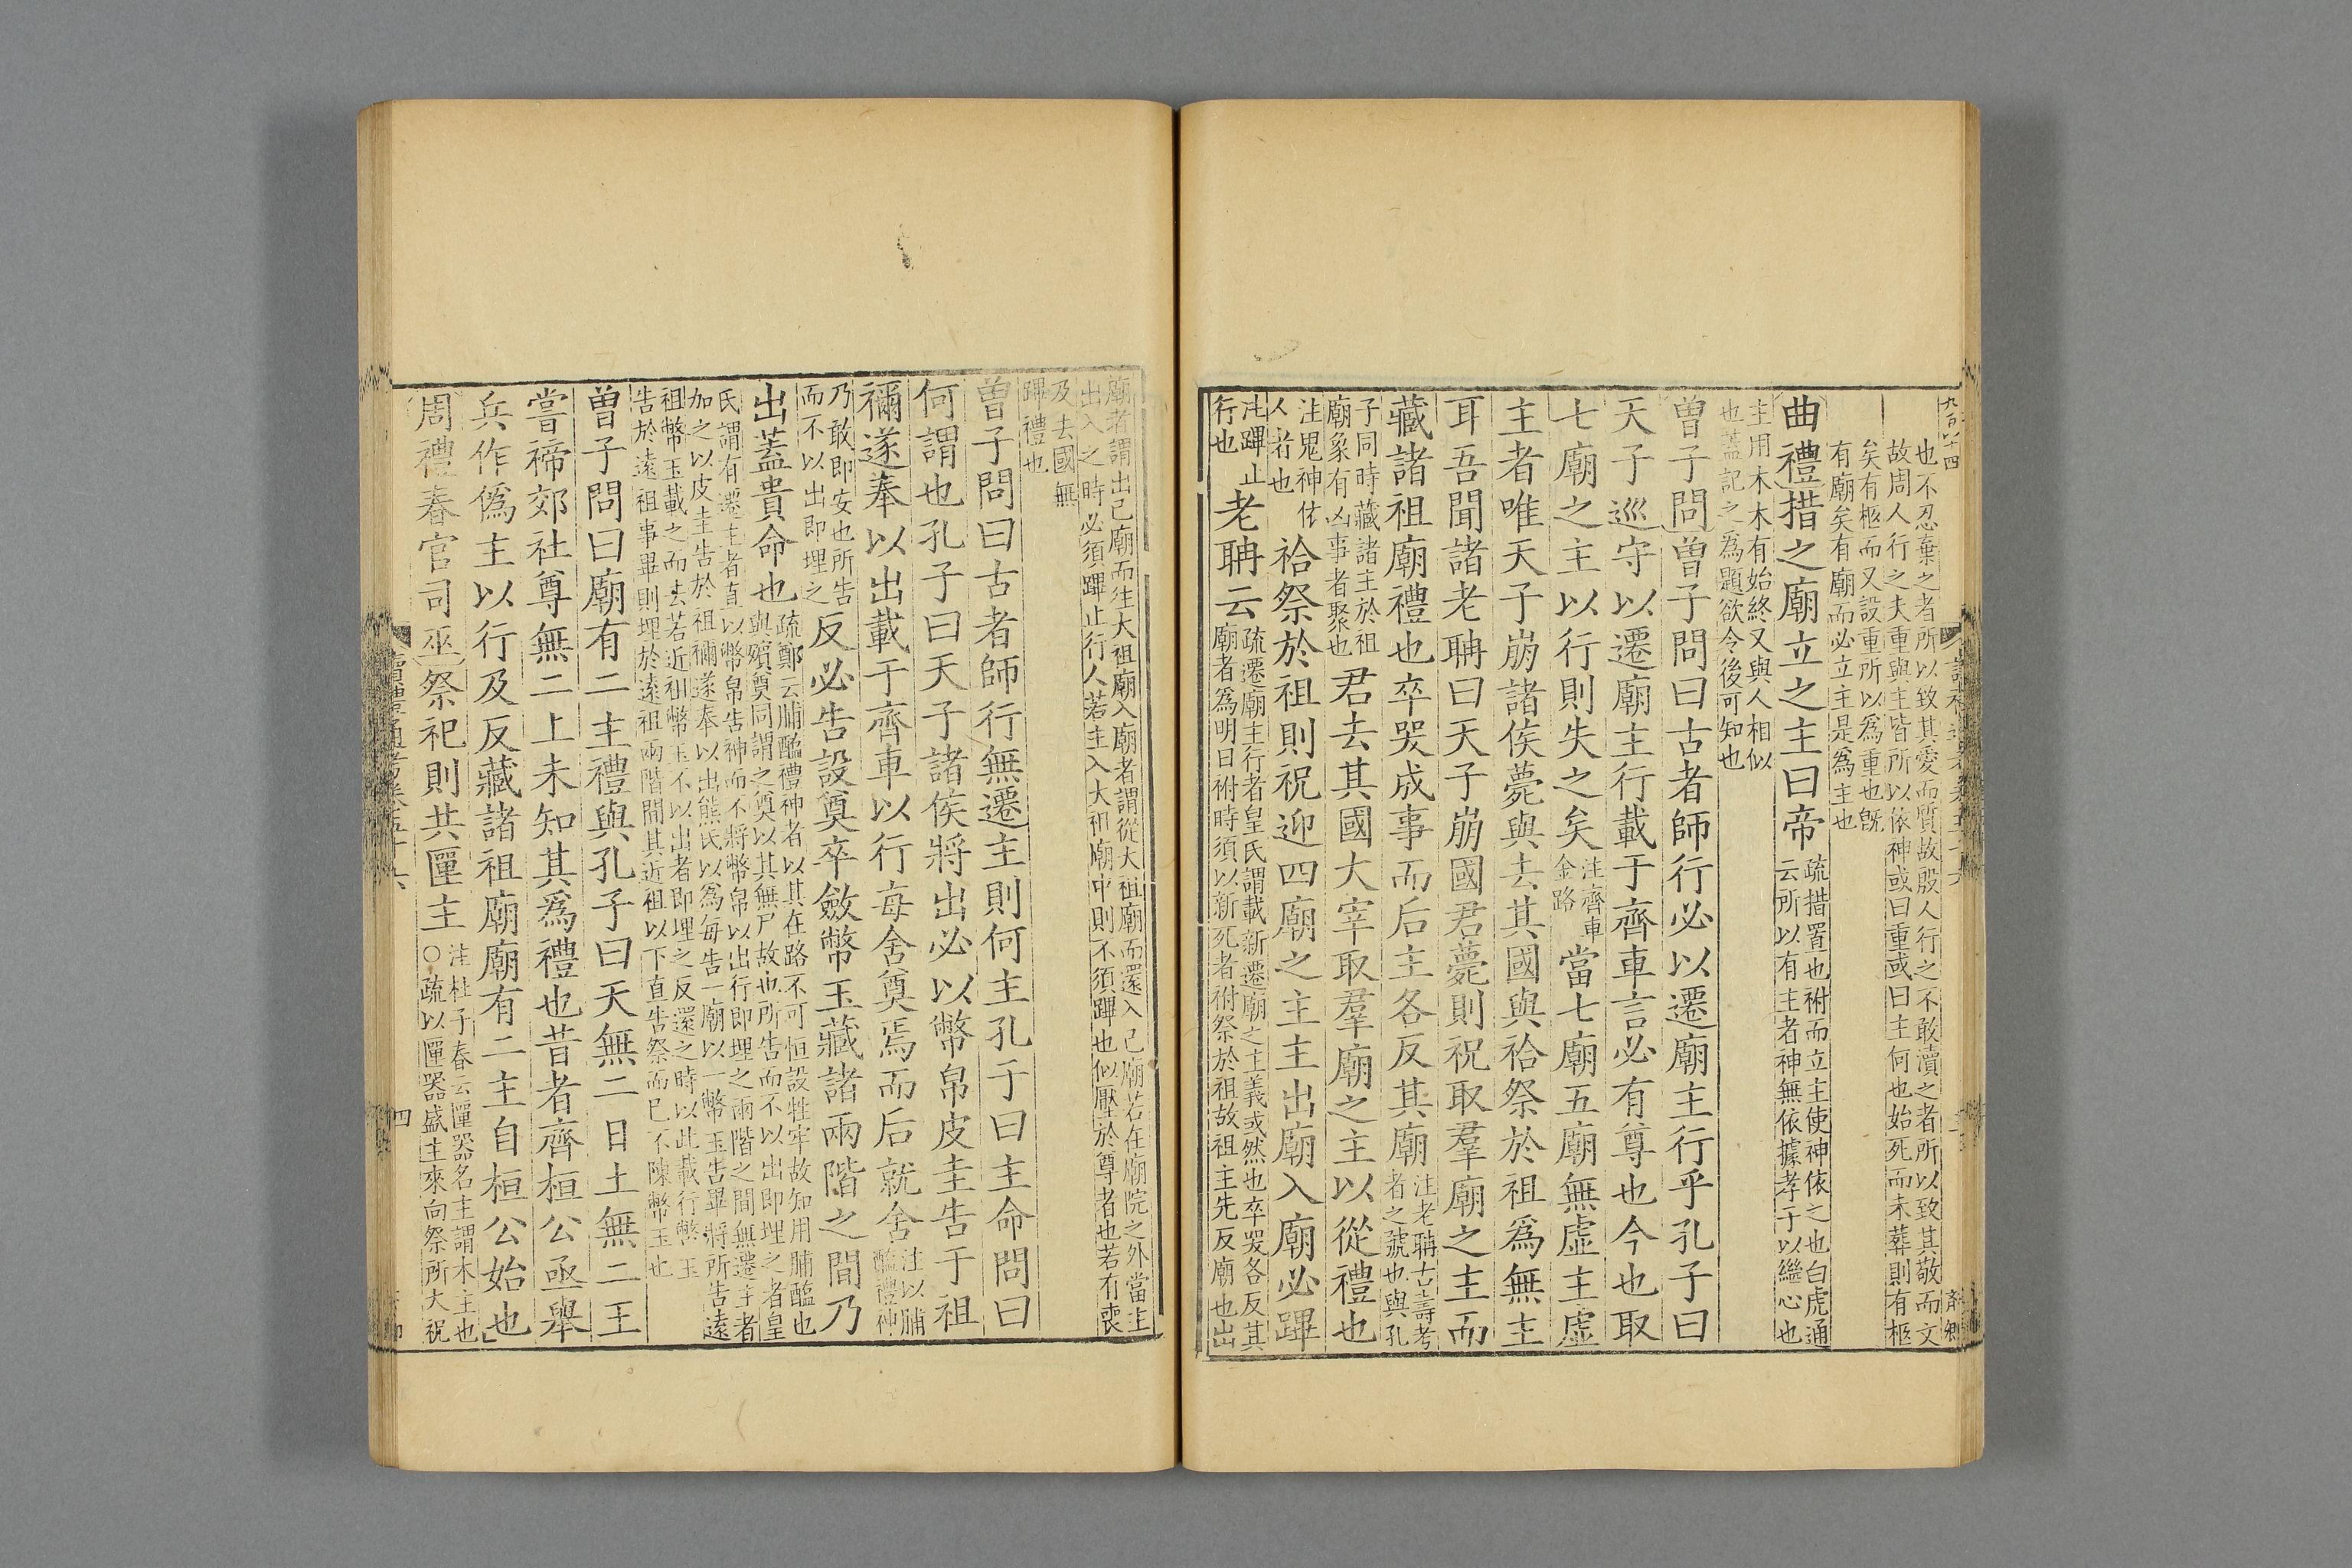 也不忍棄之者所以致其愛而質故殷人行之不敢瀆之者所以致其敬而文
故周人行之夫重與主皆所以依神或曰重或曰主何也始死而未葬則有柩
矣有柩而又設重所以爲重也旣
有廟矣有廟而必立主是爲主也
曲禮措之廟立之主曰帝
疏措置也祔而立主使神依之也白虎通
云所以有主者神無依據孝子以繼心也
主用木木有始終又與人相似
也蓋記之爲題欲令後可知也
曾子問曾子問曰古者師行必以遷廟主行乎孔子曰
天子巡守以遷廟主行載于齊車言必有尊也今也取
七廟之主以行則失之矣
注齊車
金路
當七廟五廟無虛主虛
主者唯天子崩諸侯薨與去其國與祫祭於祖爲無主
耳吾聞諸老聃曰天子崩國君薨則祝取羣廟之主而
藏諸祖廟禮也卒哭成事而后主各反其廟
注老聃古壽考
者之號也與孔
子同時藏諸主於祖
廟象有凶事者聚也
君去其國大宰取羣廟之主以從禮也
注鬼神依
人者也
祫祭於祖則祝迎四廟之主主出廟入廟必蹕
注蹕止
行也
老聃云
疏遷廟主行者皇氏謂載新遷廟之主義或然也卒哭各反其
廟者爲明日祔時須以新死者祔祭於祖故祖主先反廟也出
廟者謂出己廟而往大祖廟入廟者謂從大祖廟而還入己廟若在廟院之外當主
出入之時必須蹕止行人若主入大祖廟中則不須蹕也似壓於尊者也若有喪
及去國無
蹕禮也
曾子問曰古者師行無遷主則何主孔子曰主命問曰
何謂也孔子曰天子諸侯將出必以幣帛皮圭告于祖
禰遂奉以出載于齊車以行每舍奠焉而后就舍
注以脯
醢禮神
乃敢即安也所告
而不以出即埋之
反必告設奠卒斂幣玉藏諸兩階之間乃
出蓋貴命也
疏鄭云脯醢禮神者以其在路不可恒設牲牢故知用脯醢也
與殯奠同謂之奠以其無尸故也所告而不以出即埋之者皇
氏謂有遷主者直以幣帛告神而不將幣帛以出行即埋之兩階之間無遷主者
加之以皮圭告於祖禰遂奉以出熊氏以爲每告一廟以一幣玉告畢將所告遠
祖幣玉載之而去若近祖幣玉不以出者即埋之反還之時以此載行幣玉
告於遠祖事畢則埋於遠祖兩階間其近祖以下直告祭而已不陳幣玉也
曾子問曰廟有二主禮與孔子曰天無二日土無二王
嘗禘郊社尊無二上未知其爲禮也昔者齊桓公亟舉
兵作僞主以行及反藏諸祖廟廟有二主自桓公始也
周禮春官司巫祭祀則共匰主
注杜子春云匰器名主謂木主也
○疏以匰器盛主來向祭所大祝
四